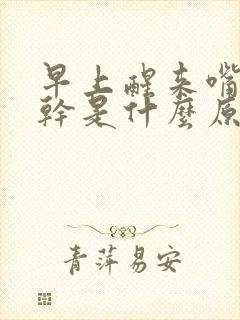 早上醒来嘴
幹是什麼原
青萍易安